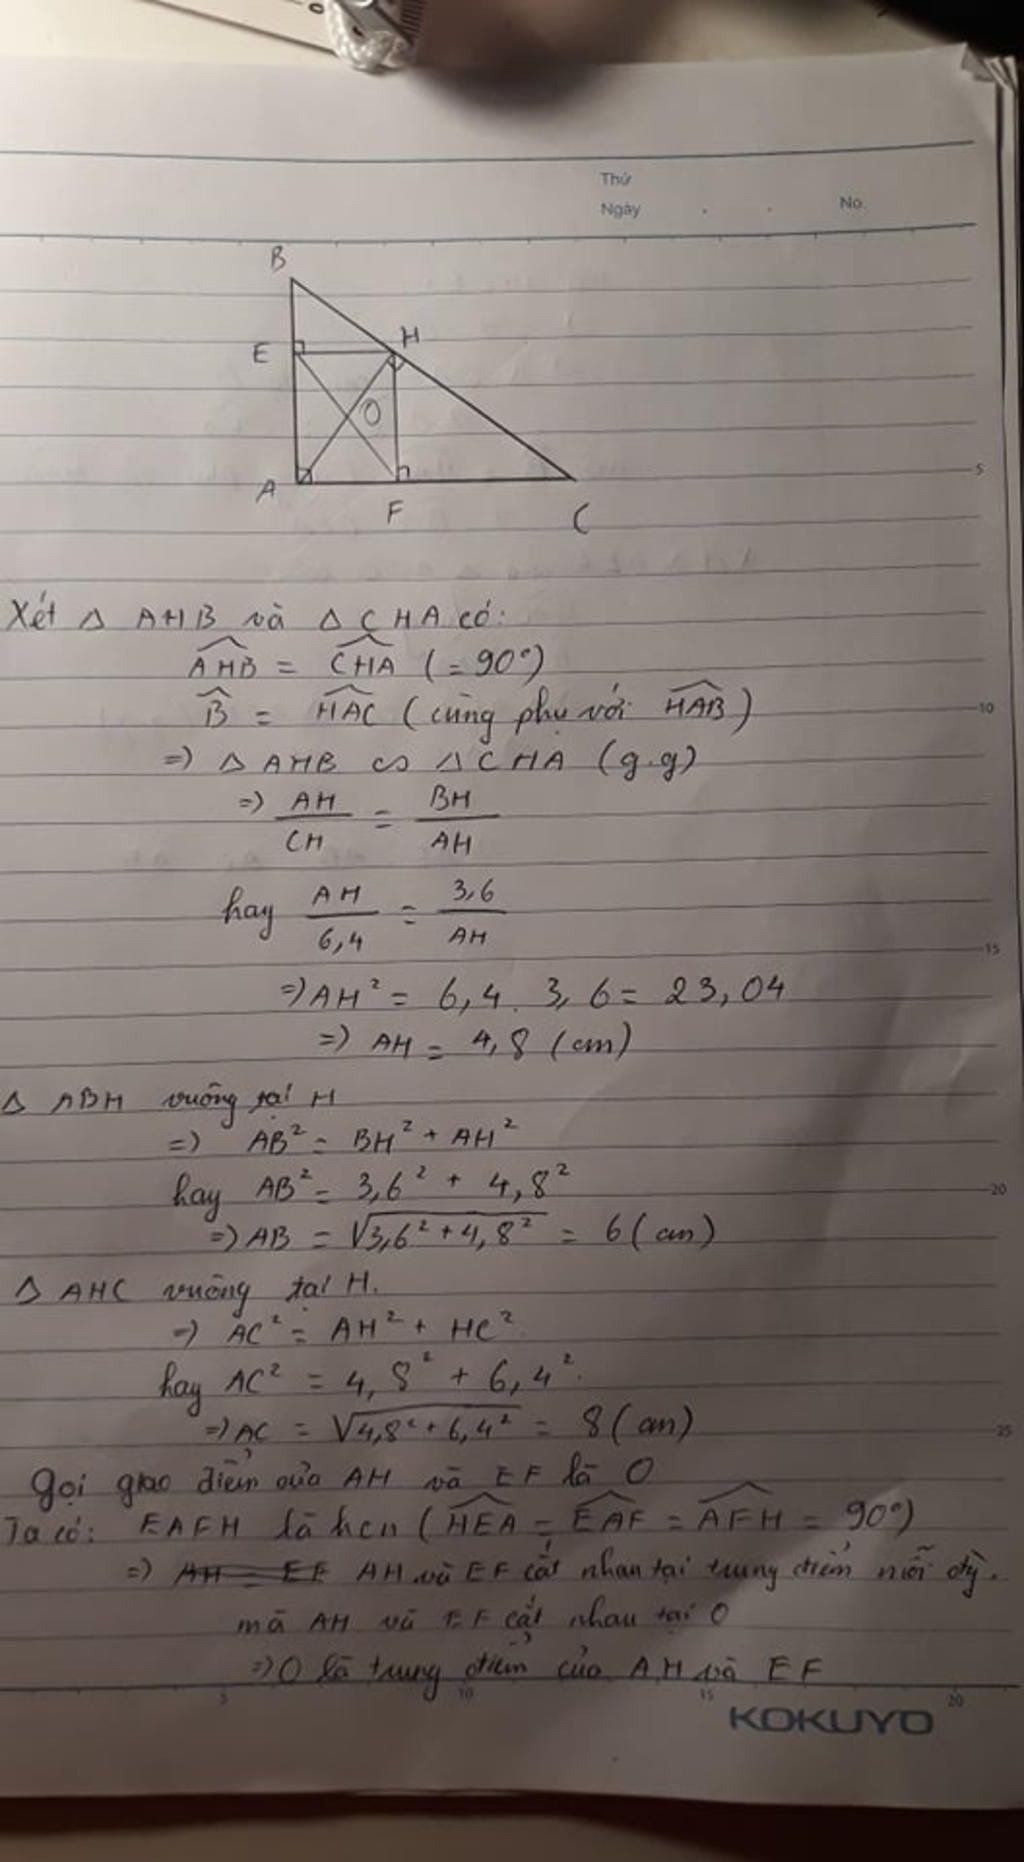 Thứ
Ngày . . No.
B
E H
O
A F C
5
Xét △ AHB và △ CHA có:
\widehat{AHB} = \widehat{CHA} (= 90°)
\widehat{B} = \widehat{HAC} (cùng phụ với \widehat{HAB}) 10
=> △ AHB ∽ △ CHA (g.g)
=> \frac{AH}{CH} = \frac{BH}{AH}
hay \frac{AH}{6,4} = \frac{3,6}{AH}
15
=> AH² = 6,4 . 3,6 = 23,04
=> AH = 4,8 (cm)
△ ABH vuông tại H
=> AB² = BH² + AH²
hay AB² = 3,6² + 4,8² 20
=> AB = √(3,6² + 4,8²) = 6 (cm)
△ AHC vuông tại H.
=> AC² = AH² + HC².
hay AC² = 4,8² + 6,4².
=> AC = √(4,8² + 6,4²) = 8 (cm) 25
Gọi giao điểm của AH và EF là O
Ta có: EAFH là hcn (\widehat{HEA} = \widehat{EAF} = \widehat{AFH} = 90°)
=> AH = EF AH và EF cắt nhau tại trung điểm mỗi đg.
mà AH và EF cắt nhau tại O
=> O là trung điểm của AH và EF
5 10 15 20
KOKUYO